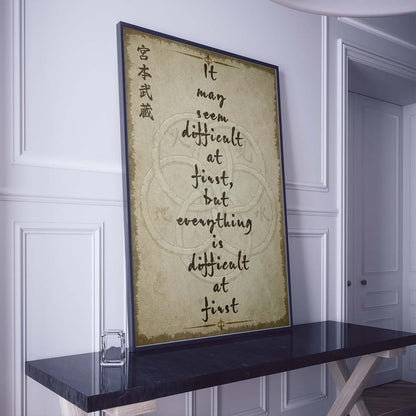 宮本武蔵
It
may
seem
difficult
at
first,
but
everything
is
difficult
at
first